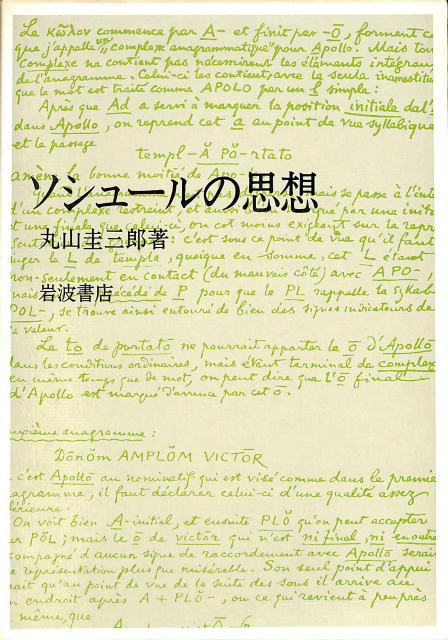 Le κῶλον commence par A- et finit par -Ō, forment
que j'appelle un "complexe anagrammatique" pour Apollo. Mais
complexe ne contient pas nécessairement les éléments
de l'anagramme. Celui-ci les contient, avec la seule
que le mot est traité comme APOLO par un l simple:
Après que Ad a servi à marquer la position initiale
dans Apollo, on reprend cet a au point de vue syllabique
et le passage
templ-Ă PŌ-rtato
amène la bonne moitié de Apo-
ソシュールの思想
se passe à
d'un complexe restreint, et aussi
par une
et une finale que celui-ci, on est moins exigeant sur la
丸山圭三郎著
: c'est sous ce point de vue qu'il faut
juger le L de templa, quoique en somme, cet L étant
non-seulement en contact (du mauvais côté) avec APO-,
岩波書店
mais précédé de P pour que le PL rappelle la
POL-, se trouve ainsi entouré de bien des signes indicateurs de
sa valeur.
Le to de portato ne pourrait apporter le ō d'Apollo
dans les conditions ordinaires, mais étant terminal de complexe
en même temps que de mot, on peut dire que l'ō final
d'Apollo est marqué d'avance par cet ō.
anagramme:
DŌNŌM AMPLŌM VICTŌR
c'est Apollo au nominatif qui est visé comme dans le
il faut déclarer celui-ci d'une qualité assez
On voit bien A- initial, et ensuite PLŌ qu'on peut accepter
PŌL; mais le ō de victōr qui n'est ni final, ni
d'aucun signe de raccordement avec Apollo serait
représentation plus que misérable. Son seul point d'appui
qu'au point de vue de la suite des sons il arrive
endroit après A + PLŌ-, ou ce qui revient à peu près
même, que